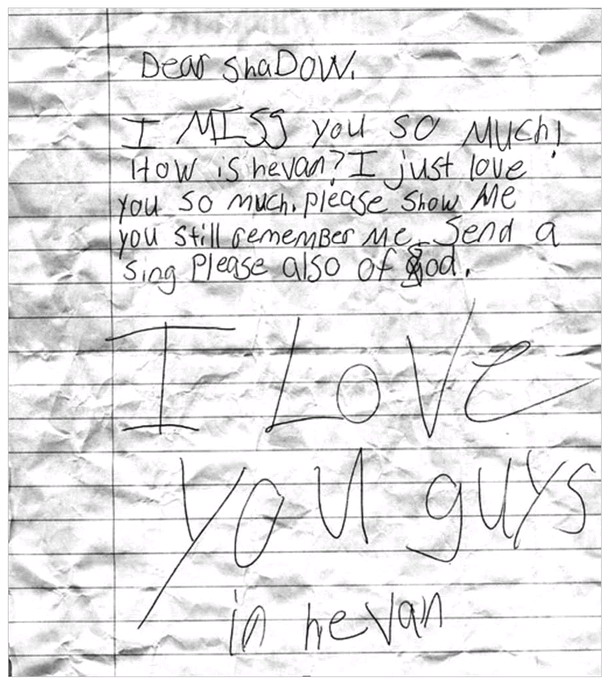 Dear ShaDOW.
I MISS you SO MUCH!
How is hevan? I just love
you so much. please show Me
you still remember Me. Send a
sing please also of God.
I LoVe
you guys
in hevan